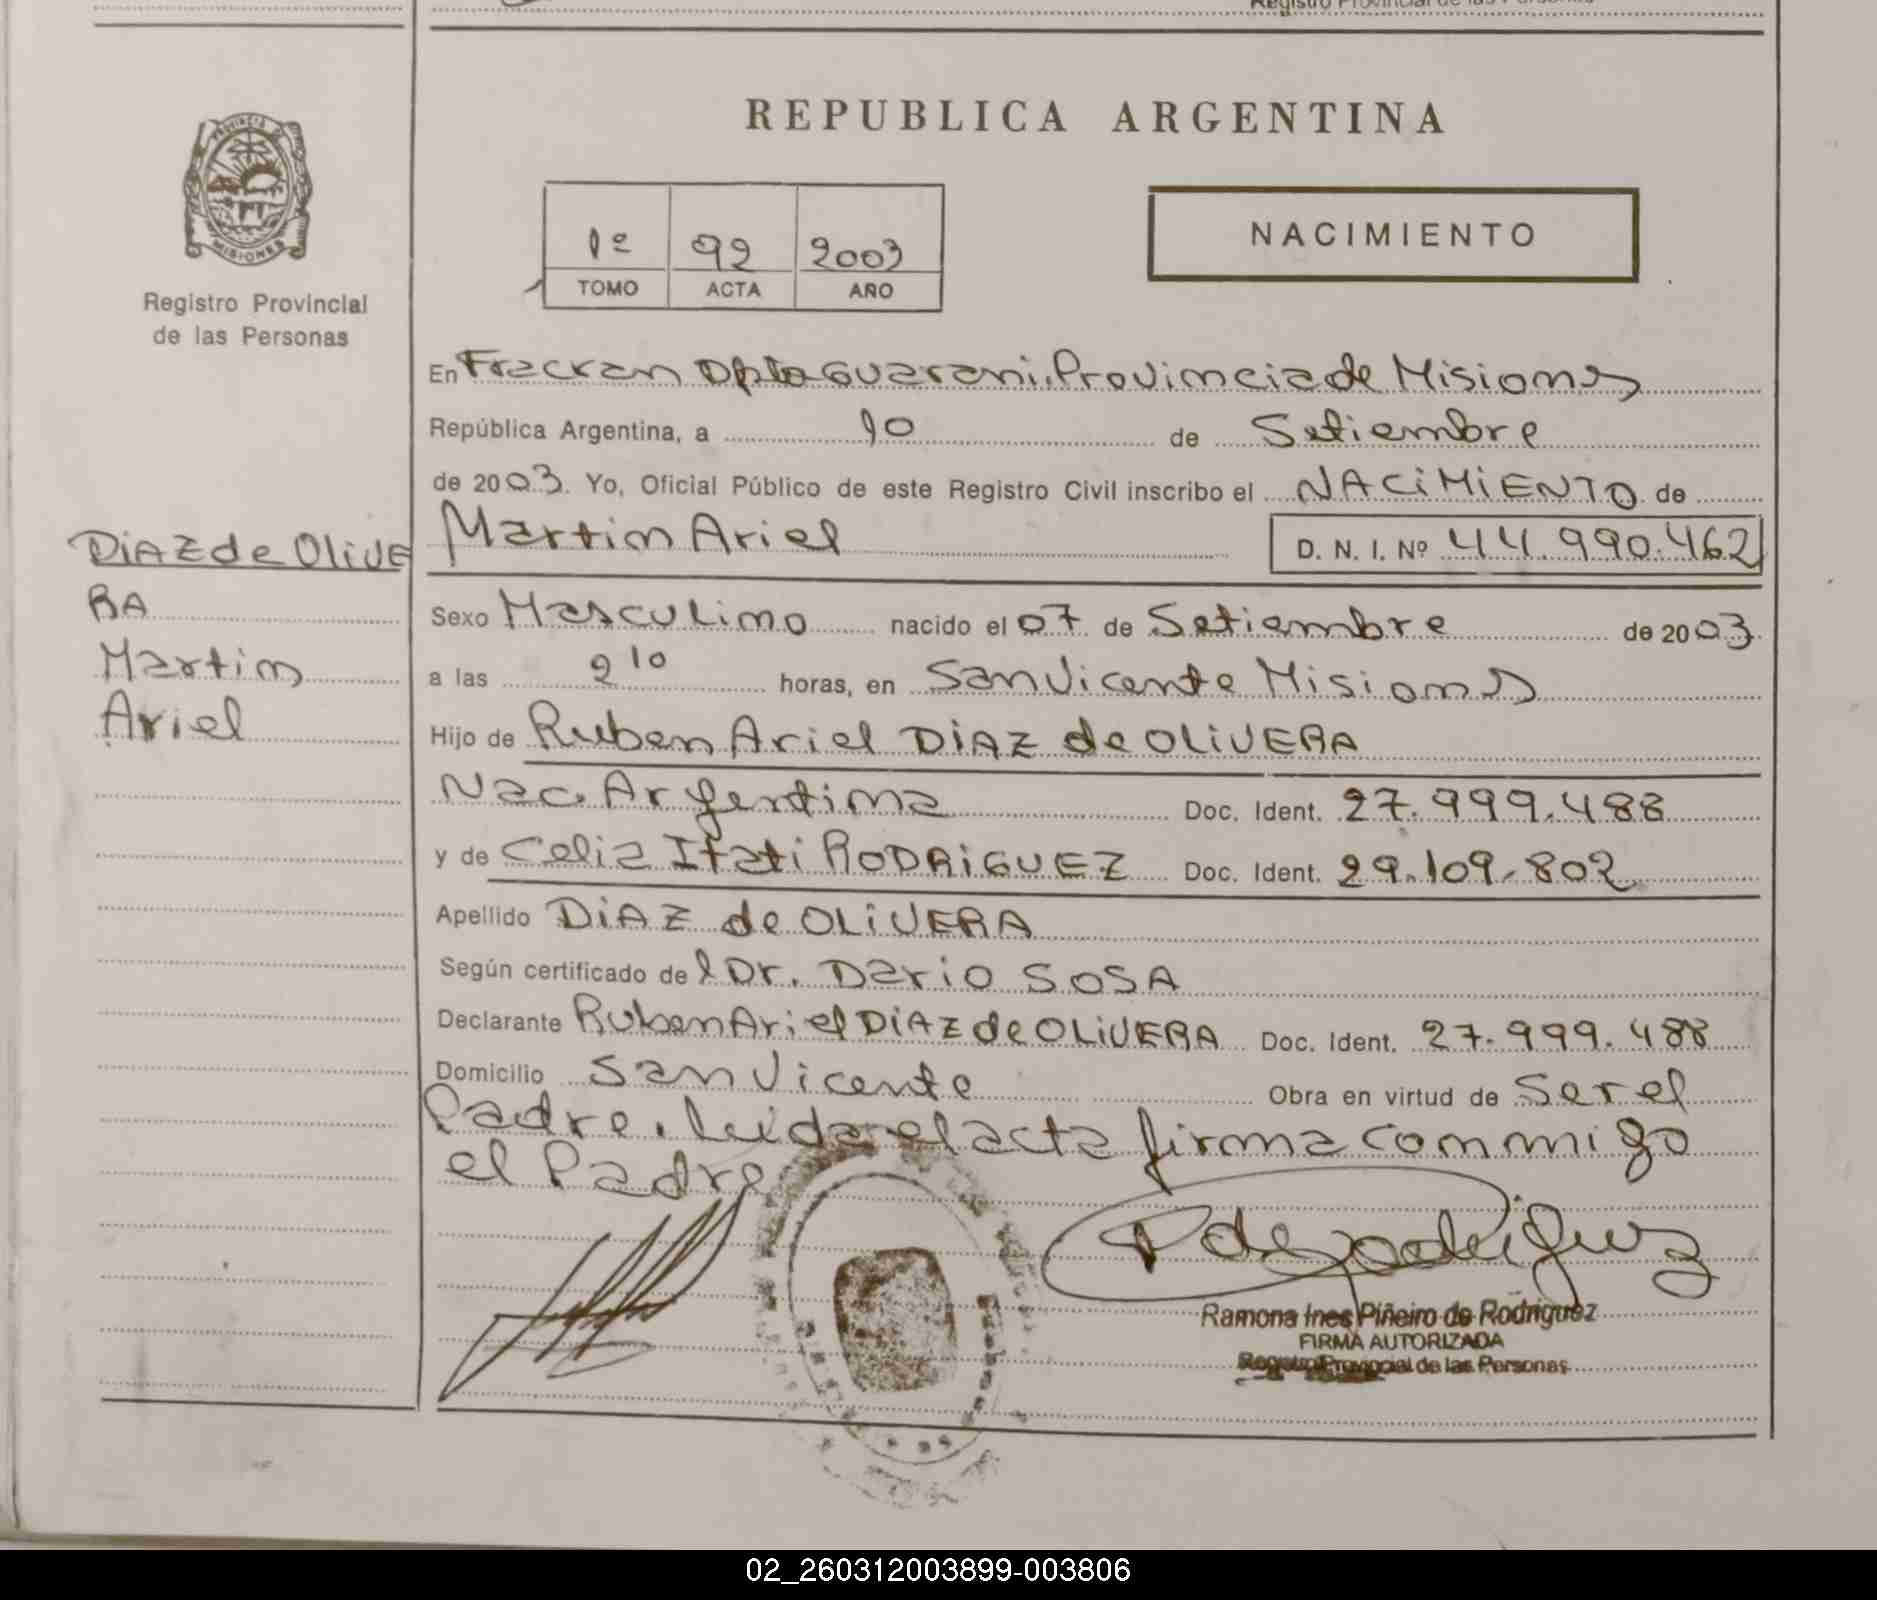 Registro Provincial de las Personas
REPUBLICA ARGENTINA
PROVINCIA DE
MISIONES
Registro Provincial
de las Personas
1º 92 2003
TOMO ACTA AÑO
NACIMIENTO
En Fracran Dpto Guarani. Provincia de Misiones
República Argentina, a 10 de Setiembre
de 2003. Yo, Oficial Público de este Registro Civil inscribo el NACIMIENTO de
Martin Ariel D. N. I. Nº 44.990.462
DIAZ de OLIVE
RA
Martin
Ariel
Sexo Masculino nacido el 07 de Setiembre de 2003
a las 2 10 horas, en San Vicente Misiones
Hijo de Ruben Ariel DIAZ de OLIVERA
Nac. Argentina Doc. Ident. 27.999.488
y de Celia Itati RODRIGUEZ Doc. Ident. 29.109.802
Apellido DIAZ de OLIVERA
Según certificado de l Dr. Dario SOSA
Declarante Ruben Ariel DIAZ de OLIVERA Doc. Ident. 27.999.488
Domicilio San Vicente Obra en virtud de Ser el
Padre. Leida el acta firma conmigo
el Padre
Ramona Ines Piñeiro de Rodriguez
FIRMA AUTORIZADA
Registro Provincial de las Personas
02_260312003899-003806